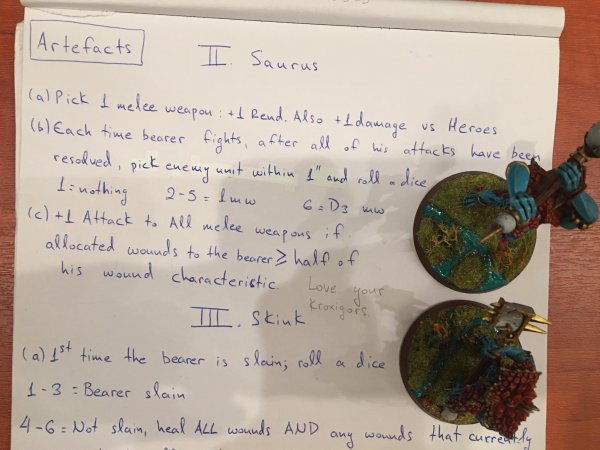 Artefacts
II. Saurus
(a) Pick 1 melee weapon: +1 Rend. Also +1 damage vs Heroes
(b) Each time bearer fights, after all of his attacks have been
resolved, pick enemy unit within 1" and roll a dice
1 = nothing 2-5 = 1 mw 6 = D3 mw
(c) +1 Attack to All melee weapons if
allocated wounds to the bearer ≥ half of
his wound characteristic.
Love your
Kroxigors.
III. Skink
(a) 1st time the bearer is slain; roll a dice
1-3 = Bearer slain
4-6 = Not slain, heal ALL wounds AND any wounds that currently